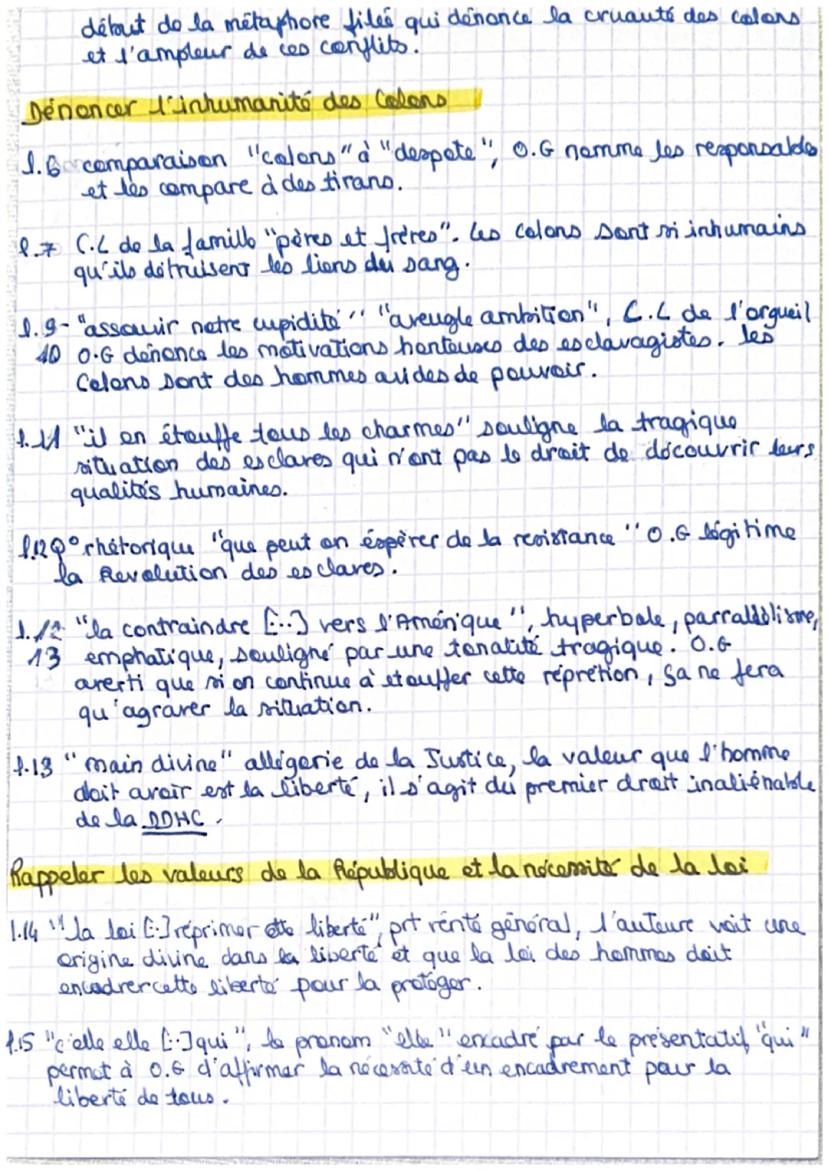 début de la métaphore fileé qui dénonce la cruauté des colons
et l'ampleur de ces conflits.
Dénoncer l'inhumanité des Colons
l.6 comparaison "colons" à "despote", O.G nomme les responsables
et les compare à des tirans.
l.7 C.L de la famille "pères et frères". Les colons sont si inhumains
qu'ils détruisent les liens du sang.
l.9- "assouvir notre cupidité" "aveugle ambition", C.L de l'orgueil
10 O.G dénonce les motivations honteuses des esclavagistes. les
Colons sont des hommes avides de pouvoir.
l.11 "il en étouffe tous les charmes" souligne la tragique
situation des esclaves qui n'ont pas le droit de découvrir leurs
qualités humaines.
l.12 Q° rhétorique "que peut on éspèrer de la resistance" O.G légitime
la Revolution des esclaves.
l.12 "la contraindre [...] vers l'Amérique", hyperbole, parralélisme,
13 emphatique, souligné par une tonalité tragique. O.G
averti que si on continue à étouffer cette réprétion, sa ne fera
qu'agraver la situation.
l.13 "main divine" allégorie de la Justice, la valeur que l'homme
doit avoir est la liberté, il s'agit du premier droit inaliénable
de la DDHC.
Rappeler les valeurs de la République et la nécessité de la loi
l.14 "la loi [...] réprimer cette liberté", prt vérité général, l'auteure voit une
origine divine dans la liberté et que la loi des hommes doit
encadrer cette liberté pour la protéger.
l.15 "c'elle elle [...] qui", le pronom "elle" encadré par le présentatif "qui"
permet à O.G d'affirmer la nécessité d'un encadrement pour la
liberté de tous.